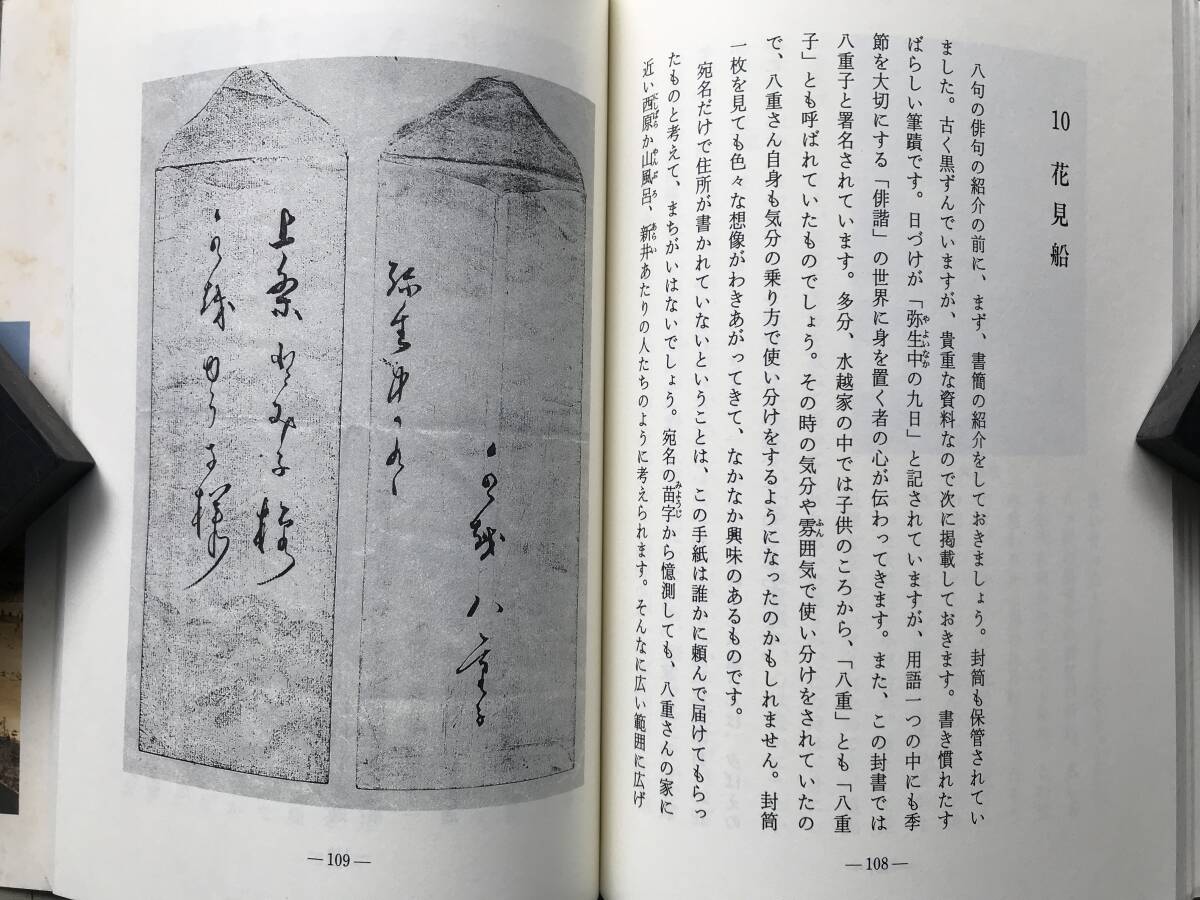 10 花見船
八句の俳句の紹介の前に、まず、書簡の紹介をしておきましょう。封筒も保管されてい
ました。古く黒ずんでいますが、貴重な資料なので次に掲載しておきます。書き慣れたす
ばらしい筆蹟です。日づけが「弥生中の九日」と記されていますが、用語一つの中にも季
節を大切にする「俳諧」の世界に身を置く者の心が伝わってきます。また、この封書では
八重子と署名されています。多分、水越家の中では子供のころから、「八重」とも「八重
子」とも呼ばれていたものでしょう。その時の気分や雰囲気で使い分けをされていたの
で、八重さん自身も気分の乗り方で使い分けをするようになったのかもしれません。封筒
一枚を見ても色々な想像がわきあがってきて、なかなか興味のあるものです。
宛名だけで住所が書かれていないということは、この手紙は誰かに頼んで届けてもらっ
たものと考えて、まちがいはないでしょう。宛名の苗字から憶測しても、八重さんの家に
近い西原か山風呂、新井あたりの人たちのように考えられます。そんなに広い範囲に広げ
—108—
八重子
弥生中の九日
—109—